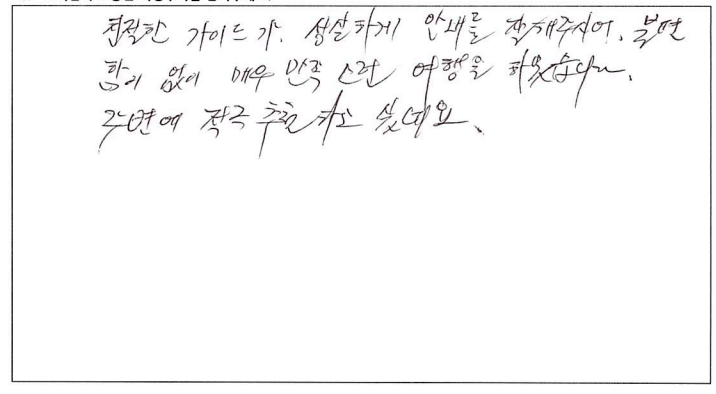 친절한 가이드가. 성실하게 안내를 잘해주시어. 불편
함이 없이 매우 만족스런 여행을 하였습니다.
주변에 적극 추천하고 싶네요.